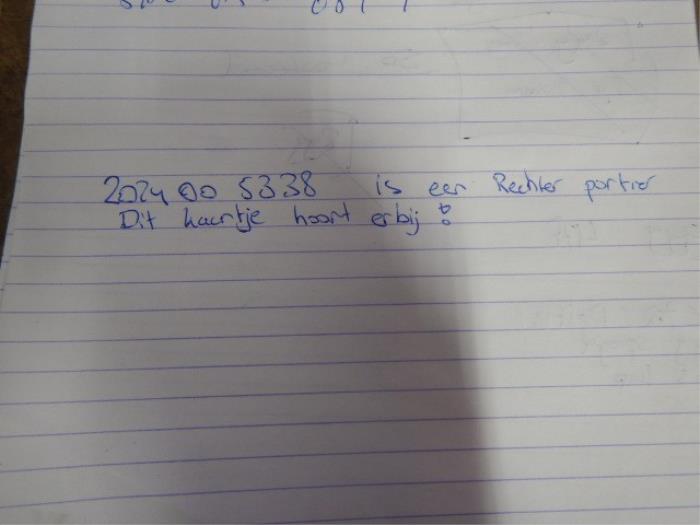 202400 5338 is een Rechter portier
Dit kaartje hoort erbij !